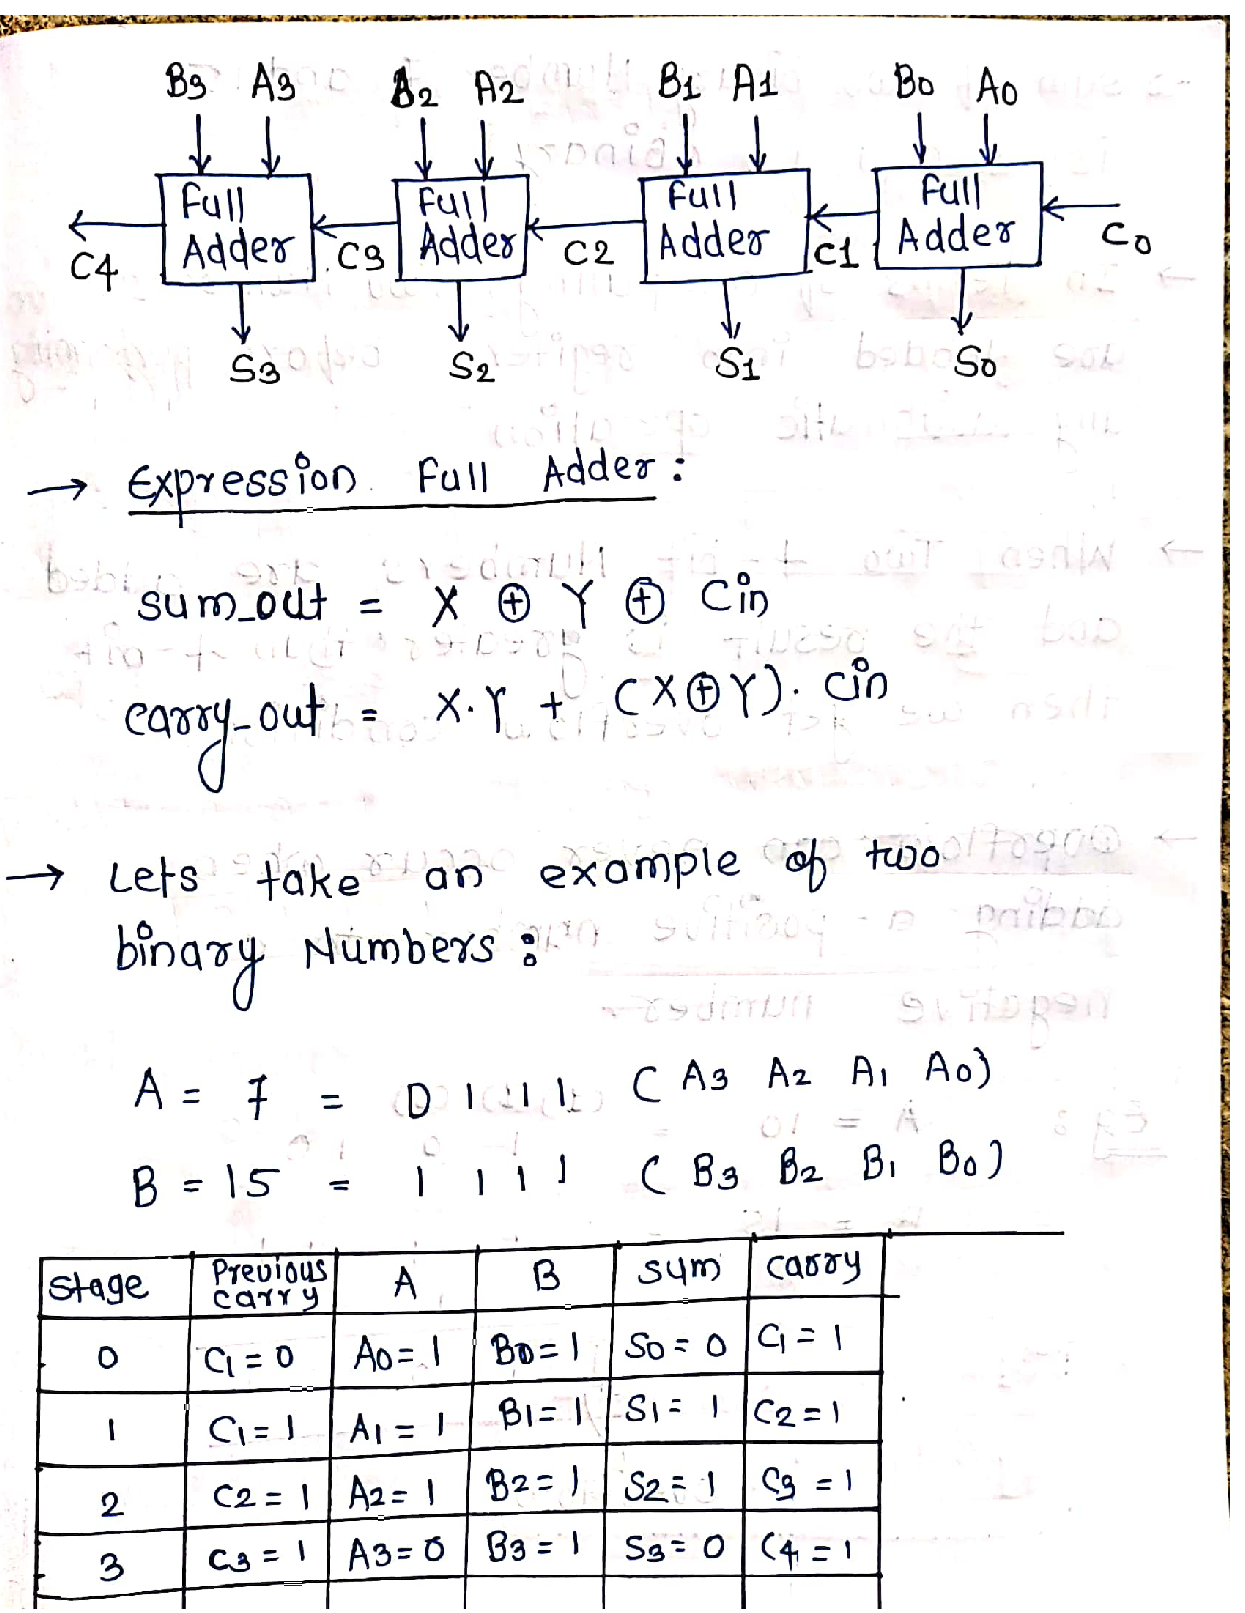 B3 A3 B2 A2 B1 A1 B0 A0
Full Full Full Full
Adder Adder Adder Adder
C4 C3 C2 C1 C0
S3 S2 S1 S0
→ Expression Full Adder :
sum_out = X ⊕ Y ⊕ Cin
carry_out = X.Y + (X⊕Y). Cin
→ Lets take an example of two
binary Numbers :
A = 7 = 0 1 1 1 ( A3 A2 A1 A0)
B = 15 = 1 1 1 1 ( B3 B2 B1 B0)
Stage Previous carry A B sum carry
0 C1 = 0 A0 = 1 B0 = 1 S0 = 0 C1 = 1
1 C1 = 1 A1 = 1 B1 = 1 S1 = 1 C2 = 1
2 C2 = 1 A2 = 1 B2 = 1 S2 = 1 C3 = 1
3 C3 = 1 A3 = 0 B3 = 1 S3 = 0 C4 = 1